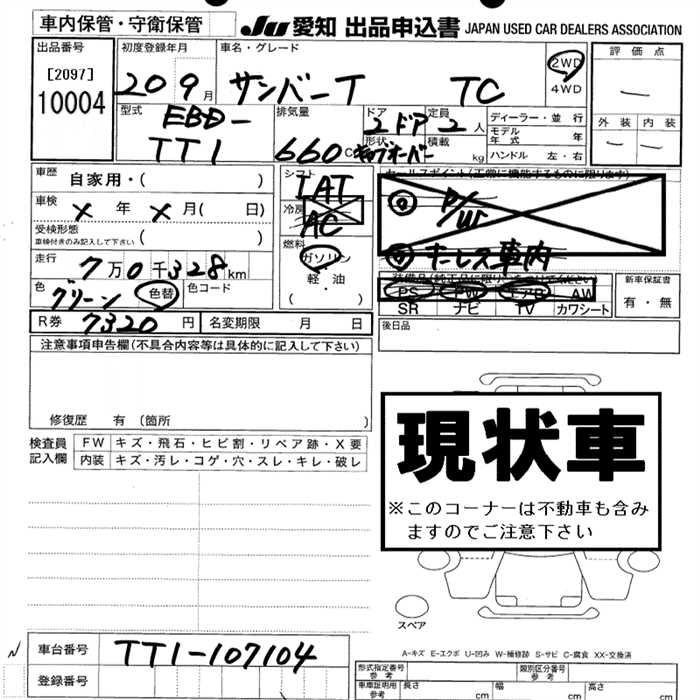 車内保管・守衛保管 Ju 愛知 出品申込書 JAPAN USED CAR DEALERS ASSOCIATION
出品番号 初度登録年月 車名・グレード 評価点
[2097] 20 9月 サンバーT TC 2WD —
10004 4WD
型式 EBD- 排気量 ドア 定員 ディーラー・並行 外装 内装
TT1 660 2ドア 2人 モデル年式 年 — —
形状 積載 kg ハンドル 左・右
車歴 自家用・( ) シフト セールスポイント(正常に機能するものに限ります)
IAT P/W
車検 X 年 X 月( 日) 冷房 AC
受検形態 ( )
車検付きのみ記入して下さい
燃料 キーレス車内
走行 7万0千328km ガソリン 装備品(純正品に限り○をつけてください) 新車保証書
色 グリーン 色替 色コード 軽油 PS PW エアB AW 有・無
(・) SR ナビ TV カワシート
R券 7320円 名変期限 月 日 後日品
注意事項申告欄(不具合内容等は具体的に記入して下さい)
現状車
※このコーナーは不動車も含み
ますのでご注意下さい
修復歴 有 (箇所 )
検査員 FW キズ・飛石・ヒビ割・リペア跡・X要
記入欄 内装 キズ・汚レ・コゲ・穴・スレ・キレ・破レ
スペア
車台番号 TT1-107104
A-キズ E-エクボ U-凹み W-補修跡 S-サビ C-腐食 XX-交換済
登録番号 形式指定番号 参考 類別区分番号 参考
車車証明用 参考 長さ cm 幅 cm 高さ cm